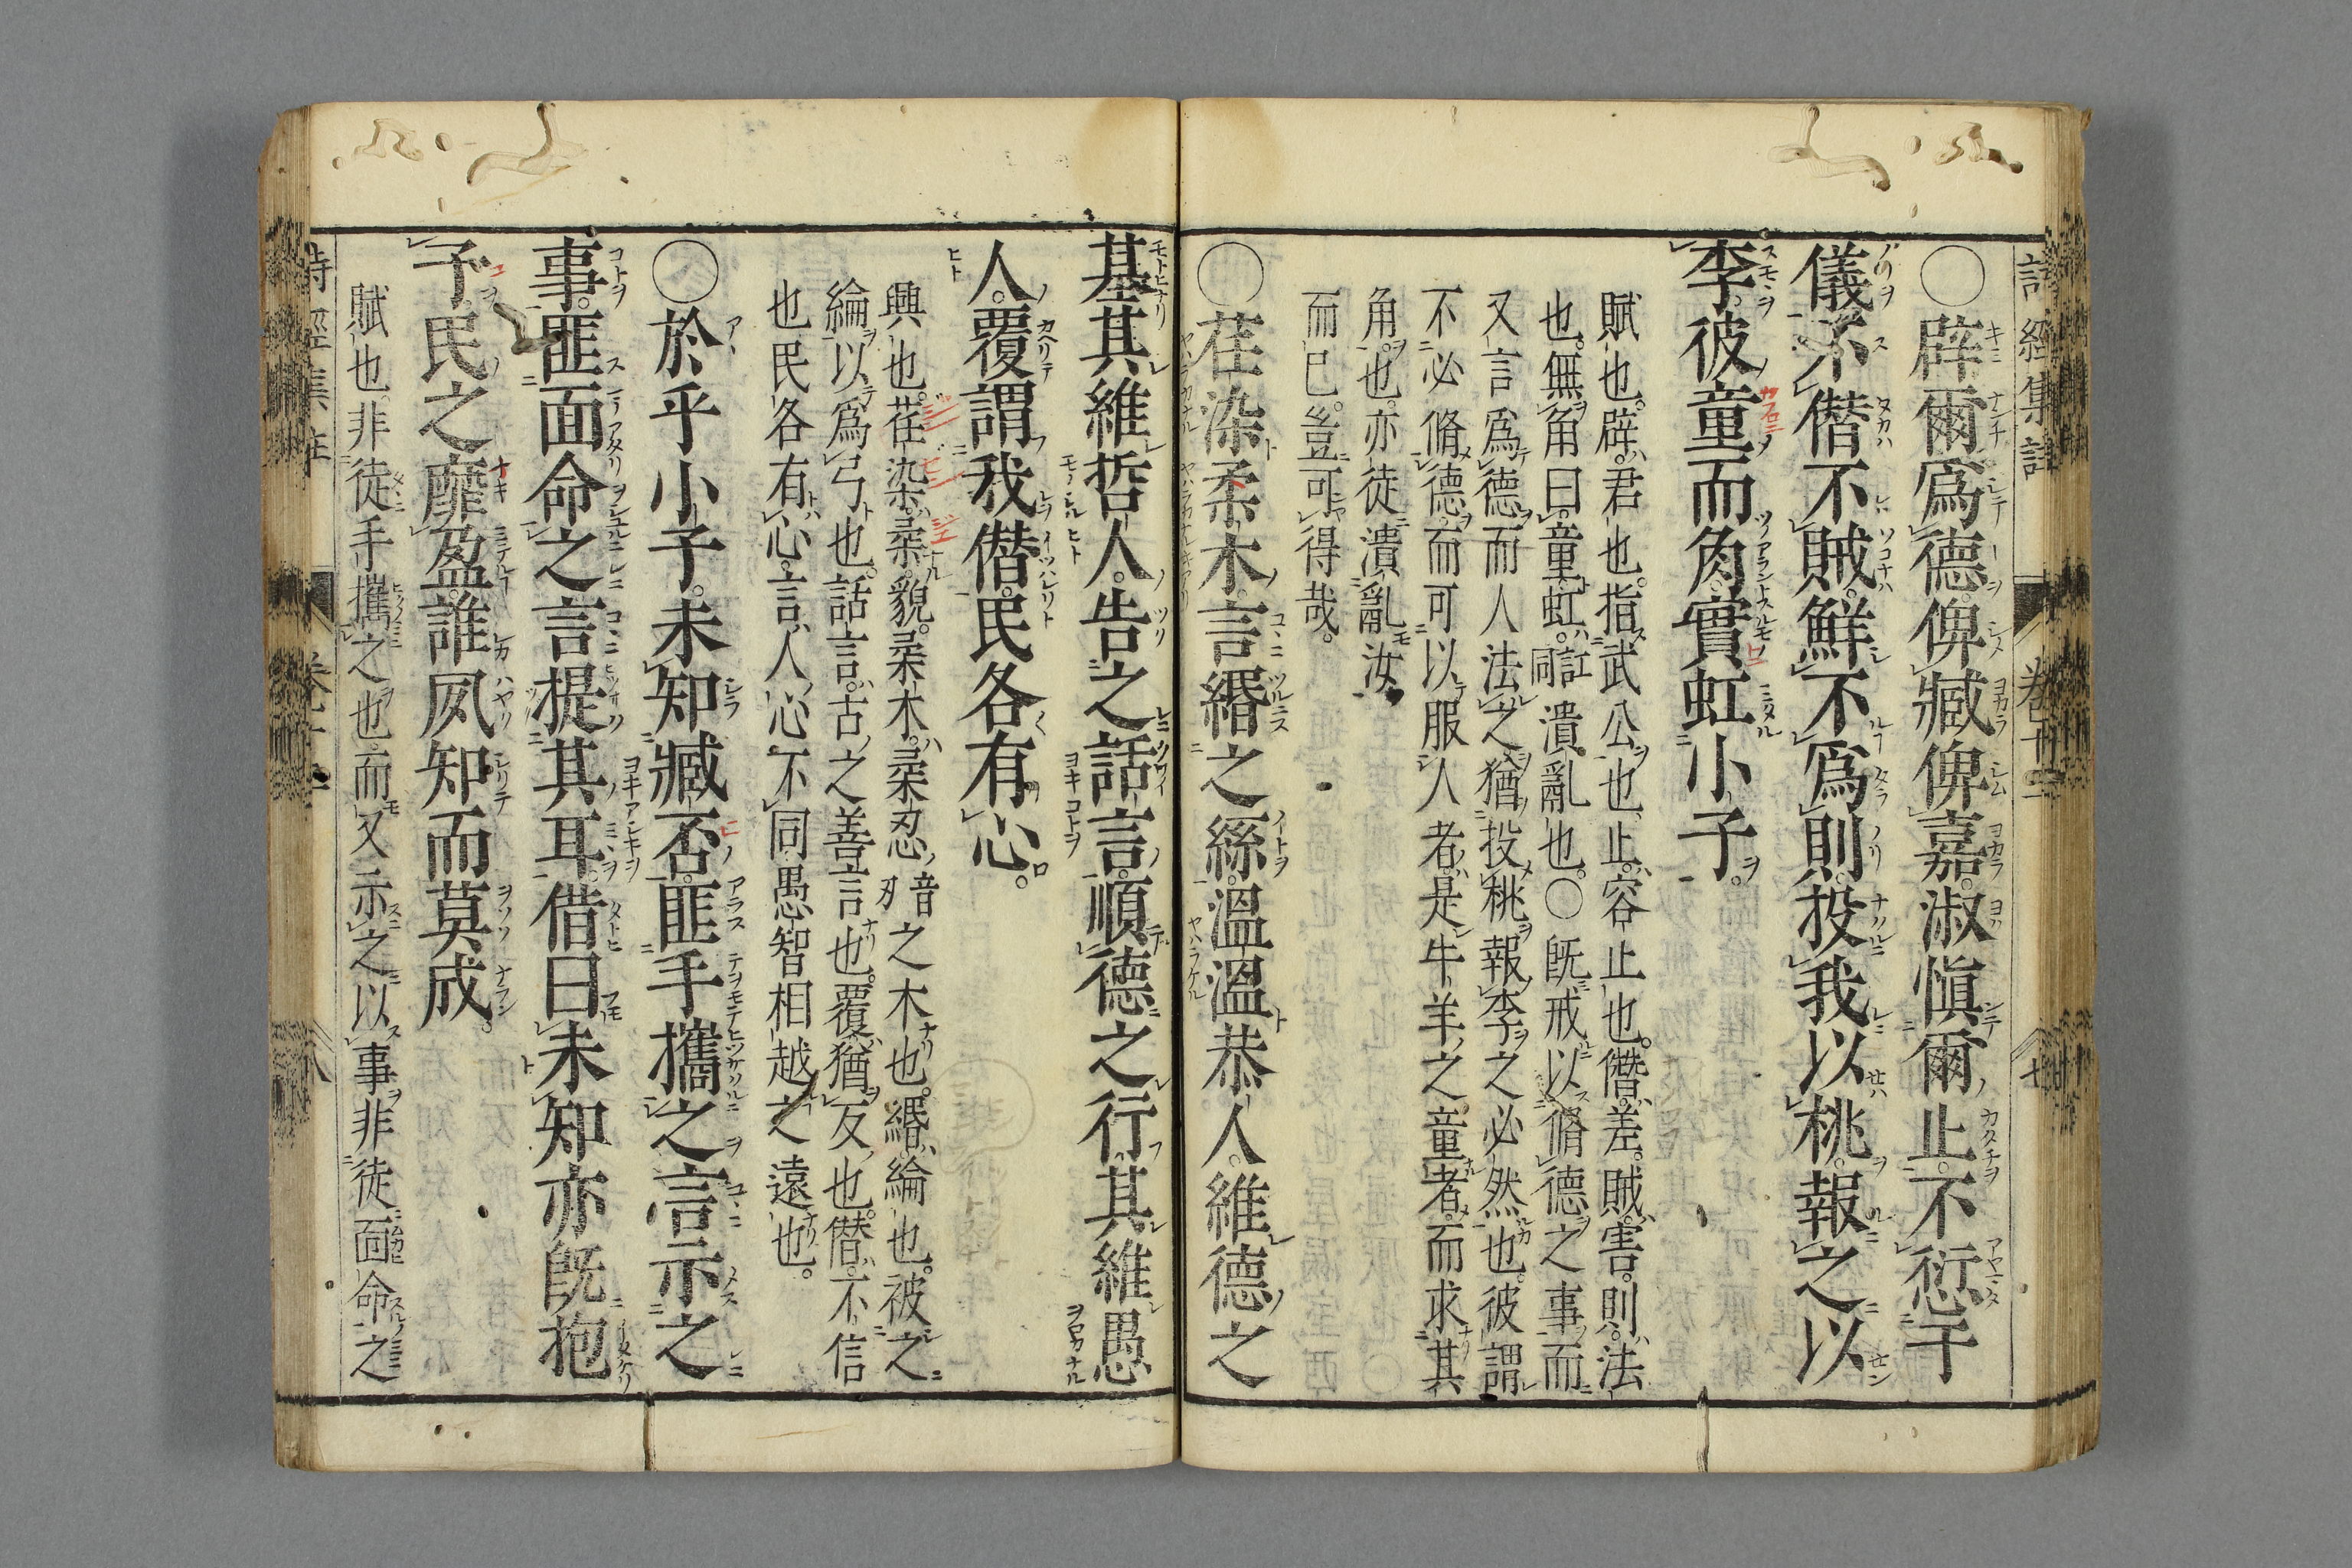 ○辟爾爲德俾臧俾嘉淑愼爾止不愆于
儀不僭不賊鮮不爲則投我以桃報之以
李彼童而角實虹小子
賦也辟君也指武公也止容止也僭差賊害則法
也無角曰童虹訌同潰亂也○旣戒以脩德之事而
又言爲德而人法之猶投桃報李之必然也彼謂
不必脩德而可以服人者是牛羊之童者而求其
角也亦徒潰亂汝
而已豈可得哉
○荏染柔木言緡之絲溫溫恭人維德之
基其維哲人告之話言順德之行其維愚
人覆謂我僭民各有心
興也荏染柔貌柔木柔忍音刃之木也緡綸也被之
綸以爲弓也話言古之善言也覆猶反也僭不信
也民各有心言人心不同愚智相越之遠也
○於乎小子未知臧否匪手攜之言示之
事匪面命之言提其耳借曰未知亦旣抱
子民之靡盈誰夙知而莫成
賦也非徒手攜之也而又示之以事非徒面命之